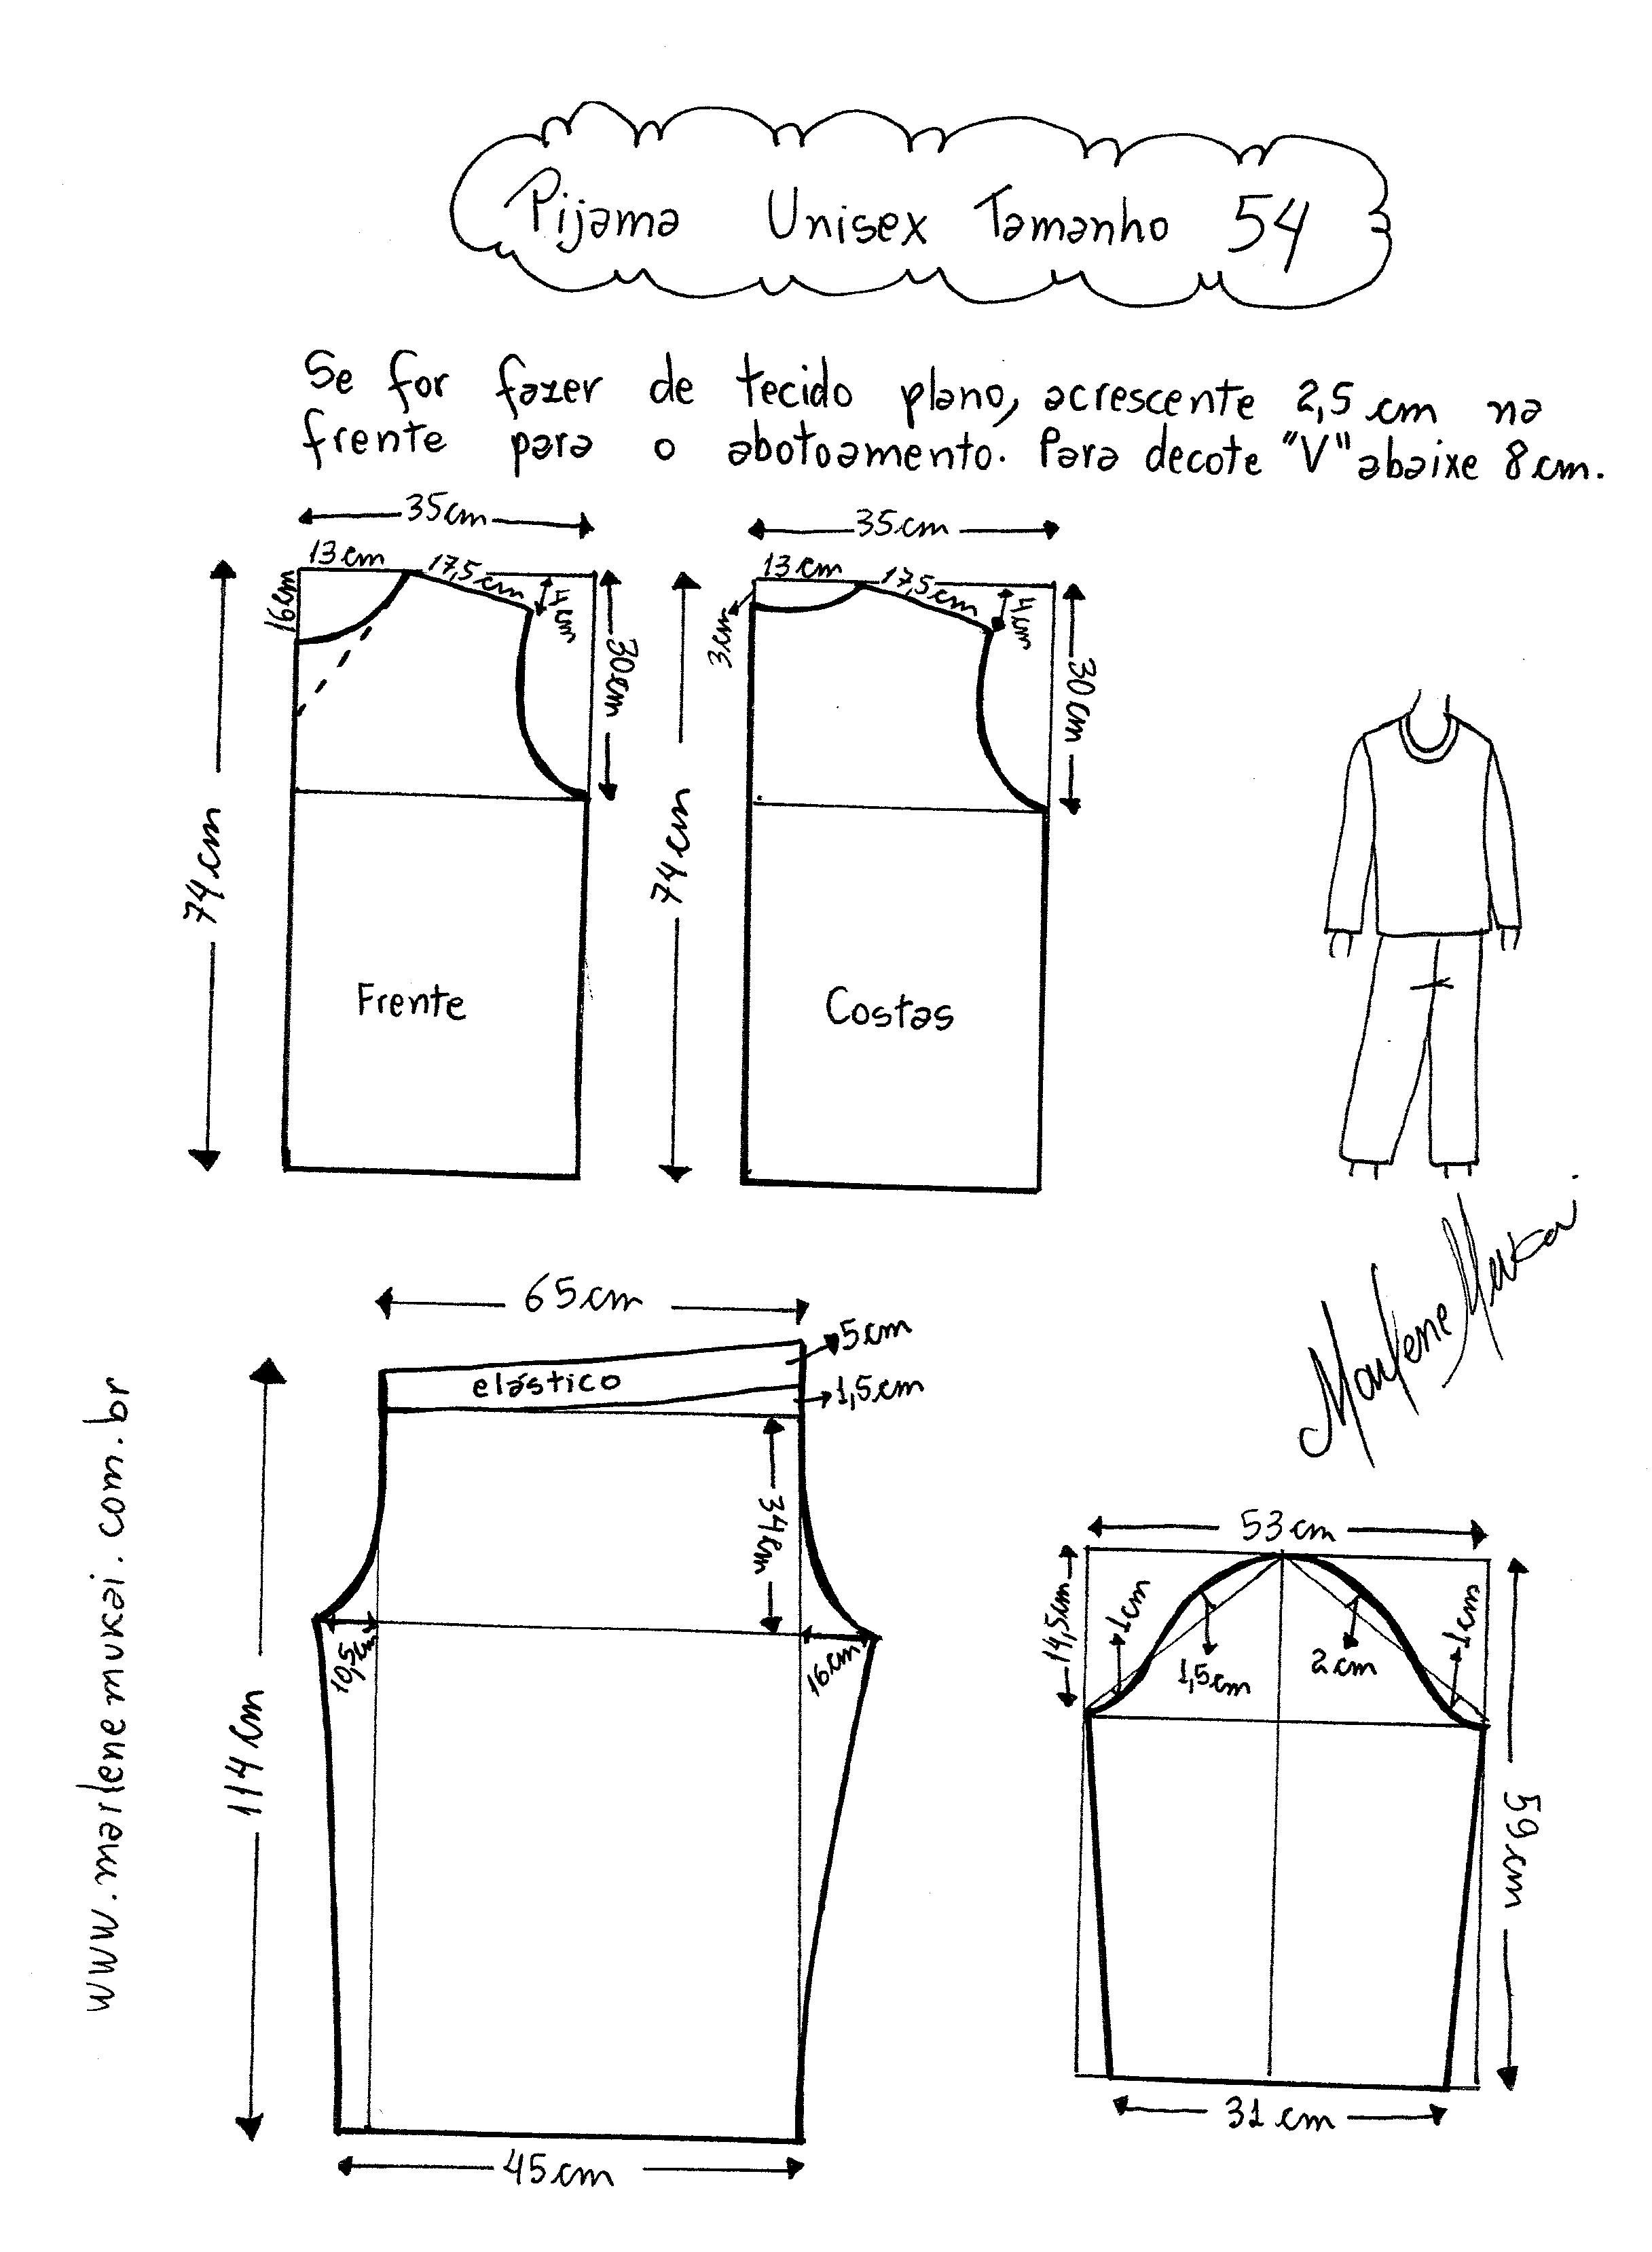 Pijama Unisex Tamanho 54
Se for fazer de tecido plano, acrescente 2,5 cm na
frente para o abotoamento. Para decote "V" abaixe 8 cm.
35cm
13 cm
17,5cm
16cm
4cm
30cm
74cm
Frente
35cm
13cm
17,5cm
3cm
4cm
30cm
74cm
Costas
Marlene Mukai
65cm
5cm
elástico
1,5cm
34cm
10,5cm
16cm
114cm
45cm
www.marlenemukai.com.br
53cm
14,5cm
1cm
1,5cm
2cm
1cm
59cm
31cm